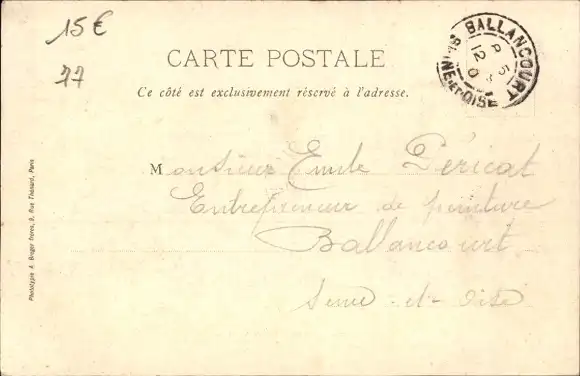 15 €
77
CARTE POSTALE
Ce côté est exclusivement réservé à l'adresse.
BALLANCOURT
SEINE-ET-OISE
Monsieur Emile Péricat
Entrepreneur de peinture
Ballancourt
Seine-et-Oise
Phototypie A. Breger frères, 9, Rue Thénard, Paris